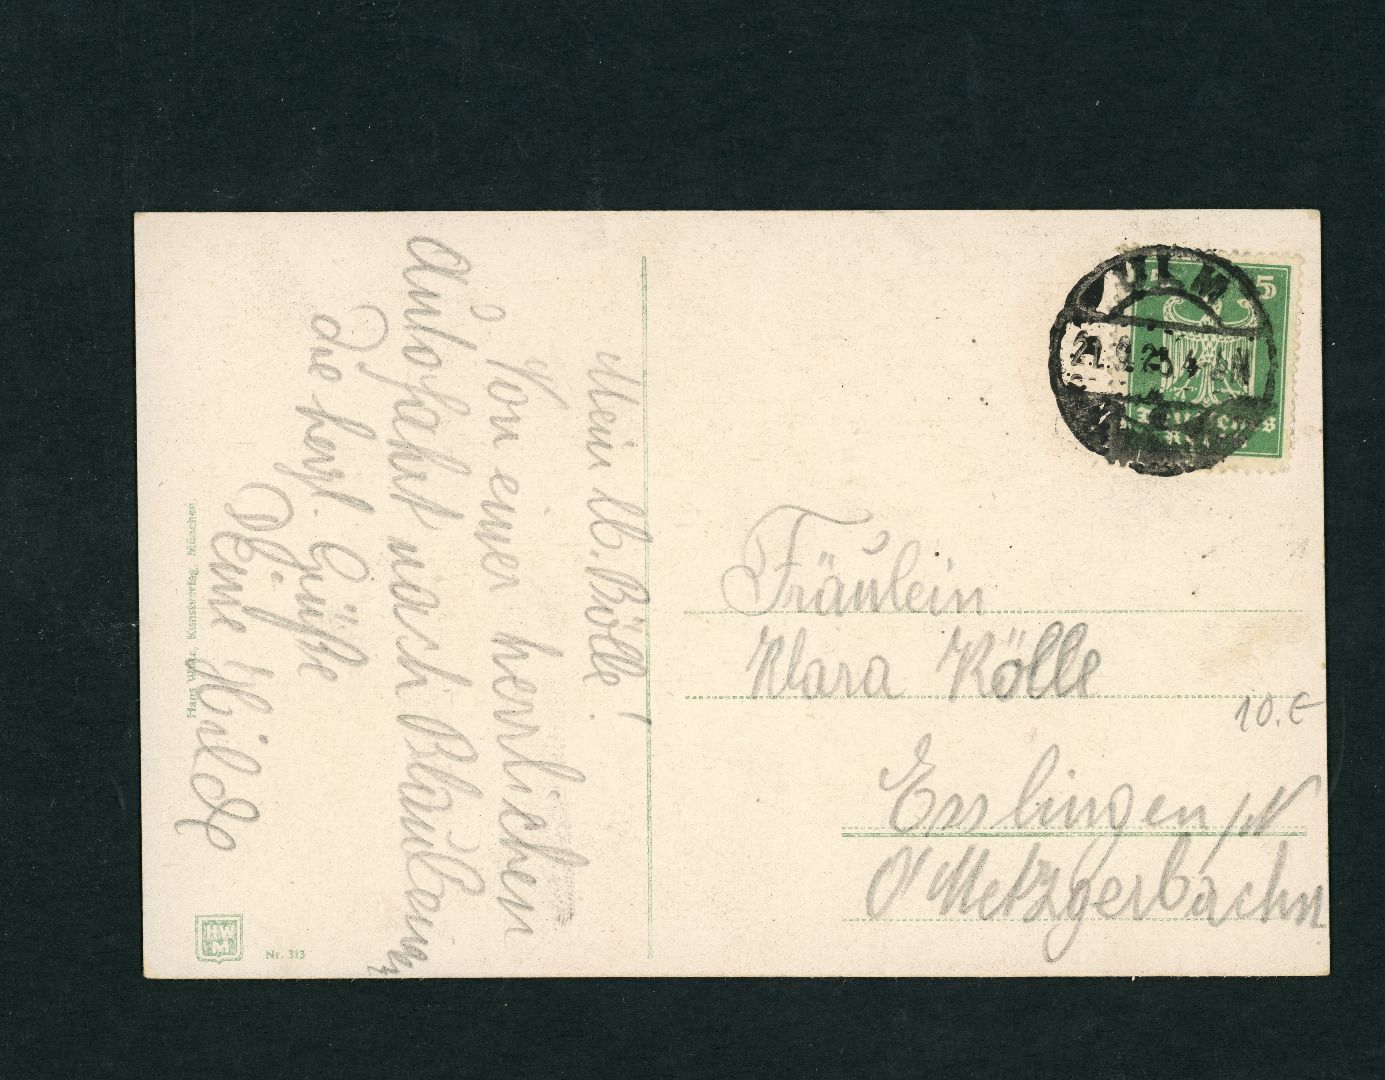 Mein lb. Bölle!
Von einer herrlichen
Autofahrt nach Blaubeuren
die herzl. Grüße
Deine Hilde
Hans Wirtz, Kunstverlag, München.
HW
M
Nr. 313
ULM
21.9.25 4-5N
5
Deutsches
Reich
Fräulein
Klara Kölle
10.€
Esslingen /N
O' Metzgerbachstr